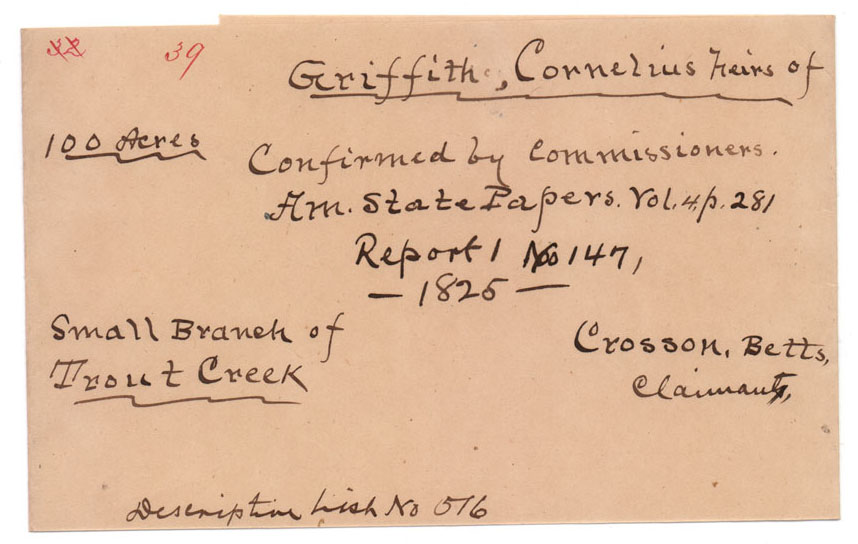 32 39
Griffith, Cornelius Heirs of
100 Acres
Confirmed by Commissioners.
Am. State Papers. Vol. 4, p. 281
Report 1 No 147,
— 1825 —
Small Branch of
Trout Creek
Crosson, Betts,
Claimants,
Descriptive List No 516